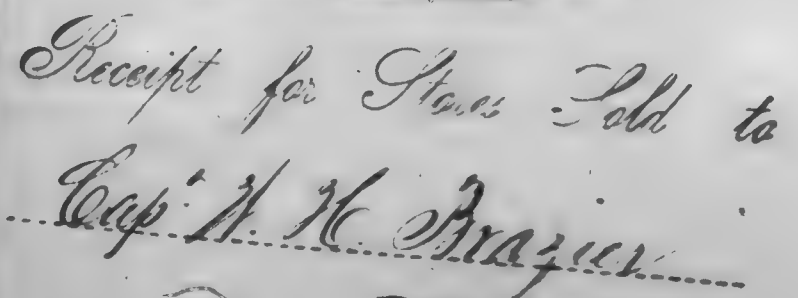 Receipt for Stores Sold to
Capt W. H. Brazier